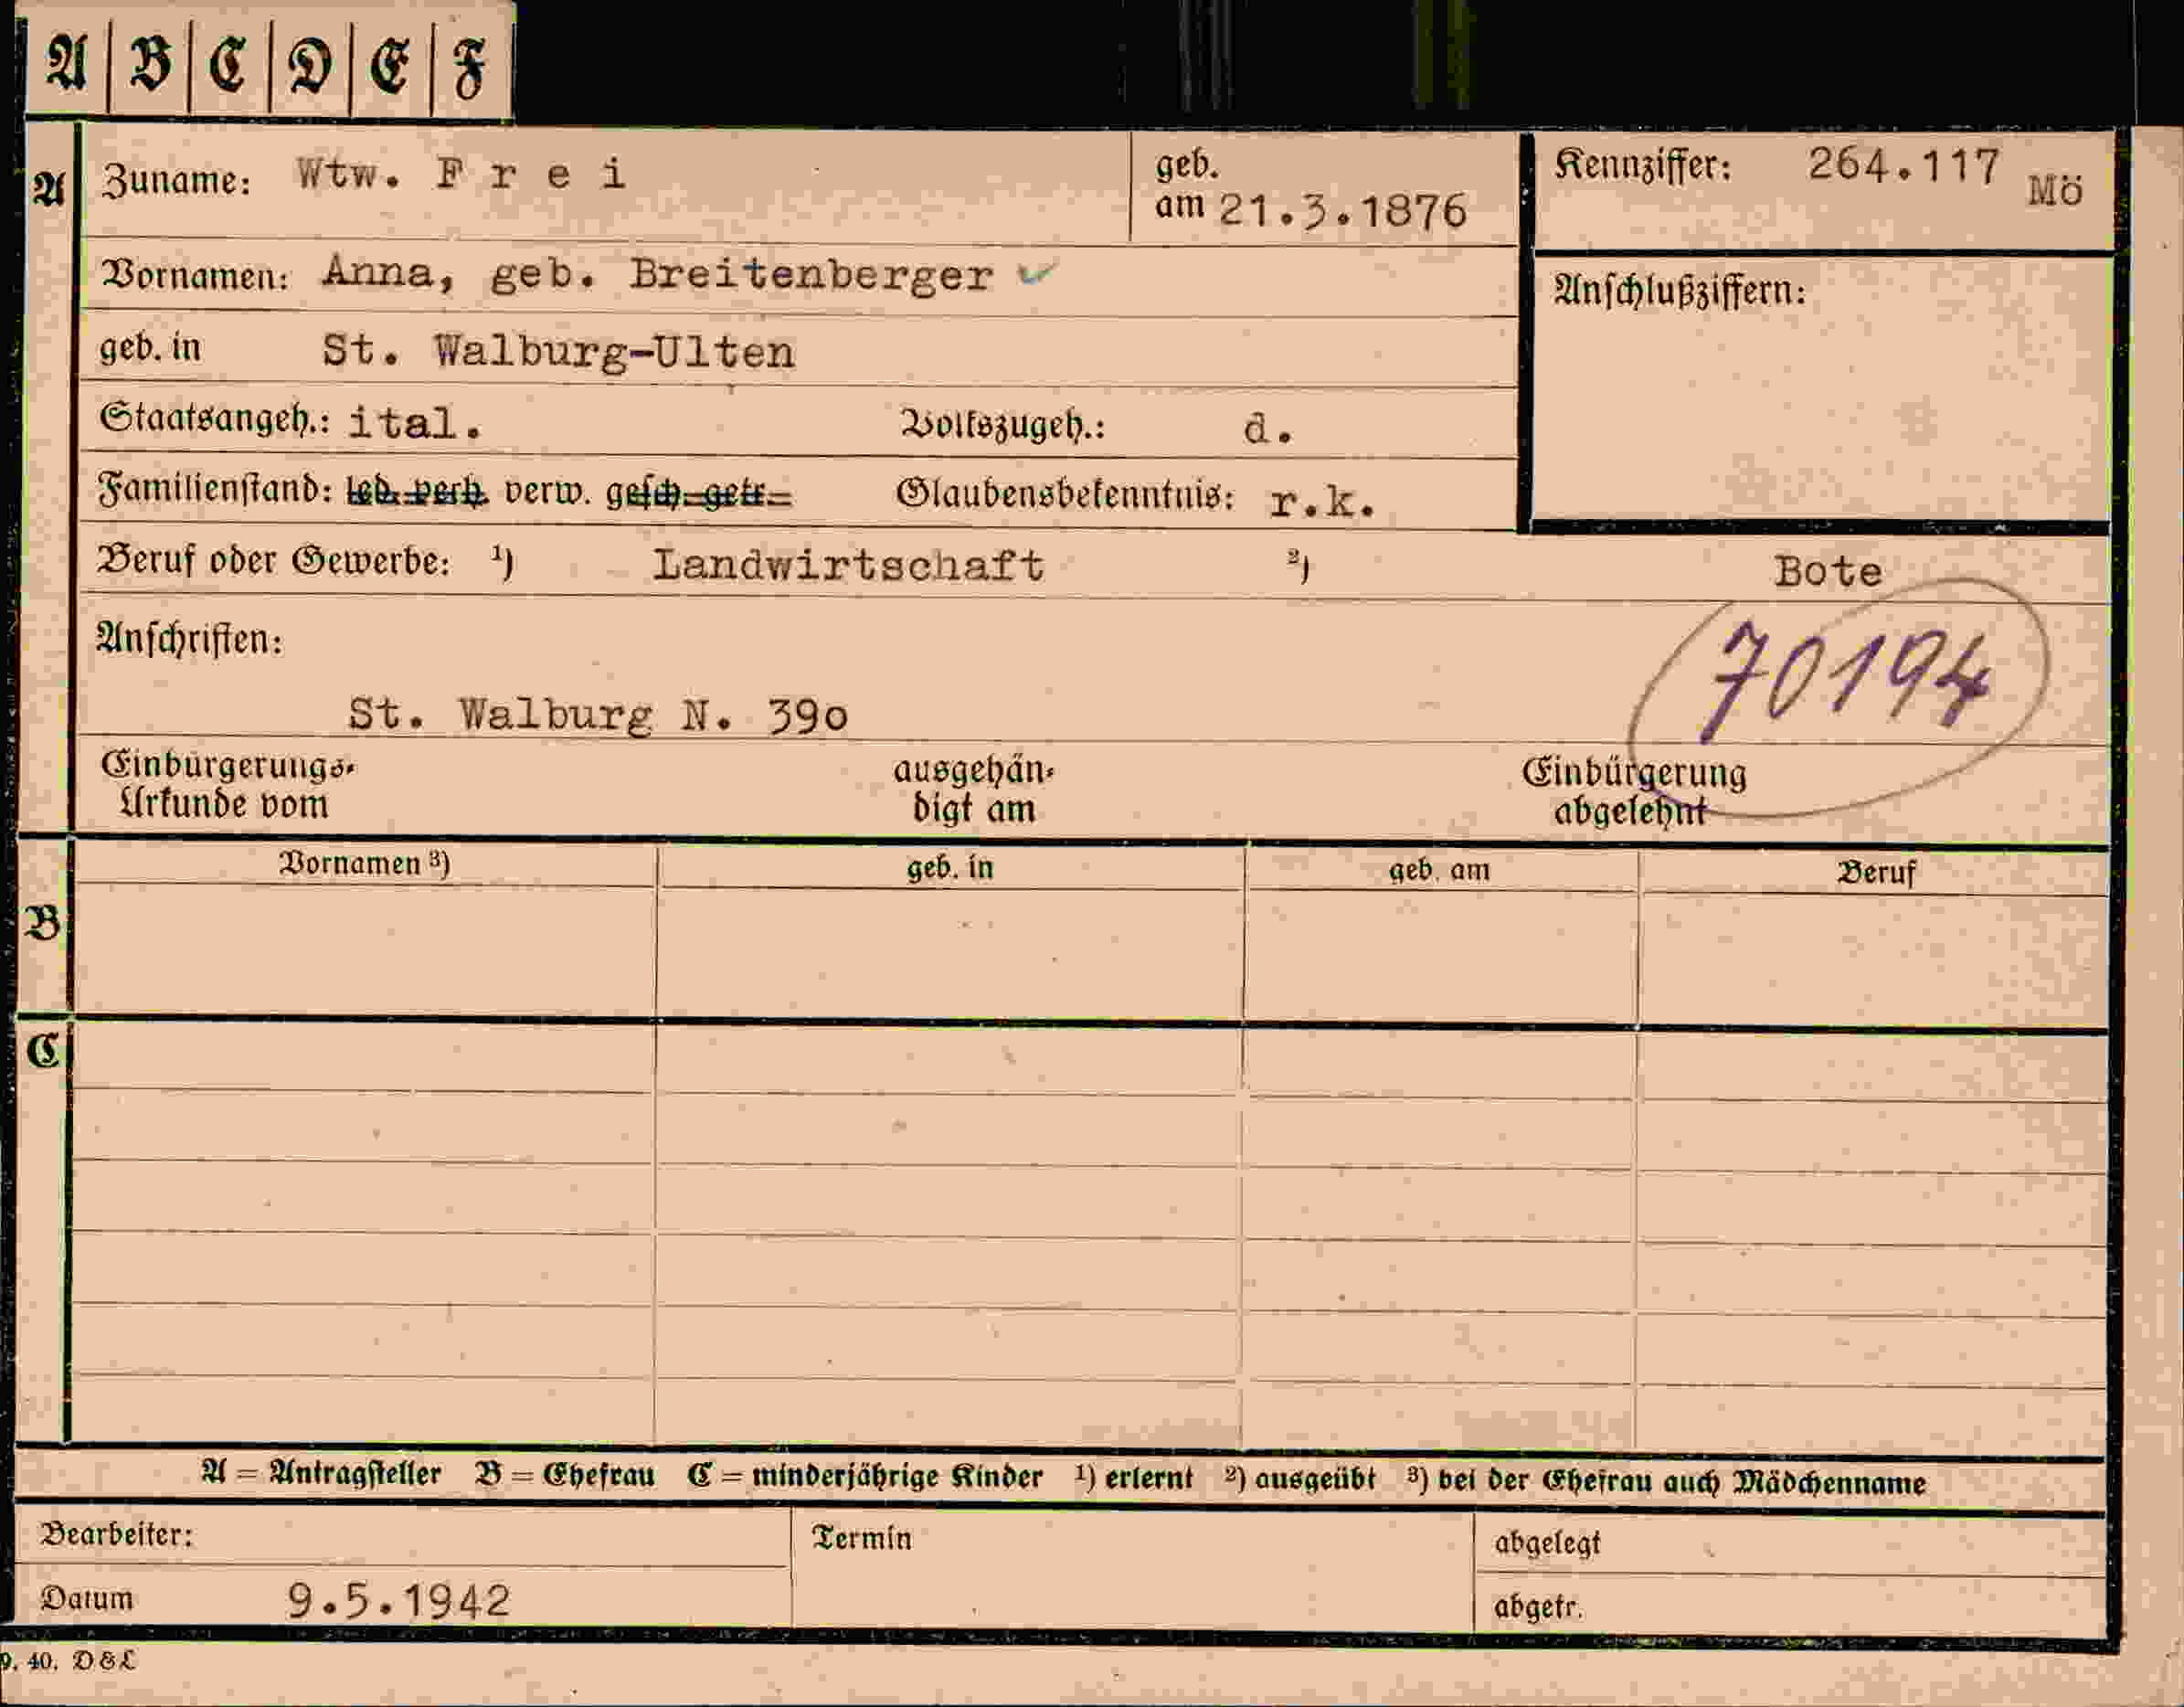 A B C D E F
A Zuname: Wtw. F r e i geb. am 21.3.1876 Kennziffer: 264.117 Mö
Vornamen: Anna, geb. Breitenberger Anschlußziffern:
geb. in St. Walburg-Ulten
Staatsangeh.: ital. Volkszugeh.: d.
Familienstand: led. verh. verw. gesch. getr. Glaubensbekenntnis: r.k.
Beruf oder Gewerbe: ¹) Landwirtschaft ²) Bote
Anschriften:
70194
St. Walburg N. 39o
Einbürgerungs- ausgehän- Einbürgerung
Urkunde vom digt am abgelehnt
Vornamen ³) geb. in geb. am Beruf
B
C
A = Antragsteller B = Ehefrau C = minderjährige Kinder ¹) erlernt ²) ausgeübt ³) bei der Ehefrau auch Mädchenname
Bearbeiter: Termin abgelegt
Datum 9.5.1942 abgetr.
9. 40. D&L